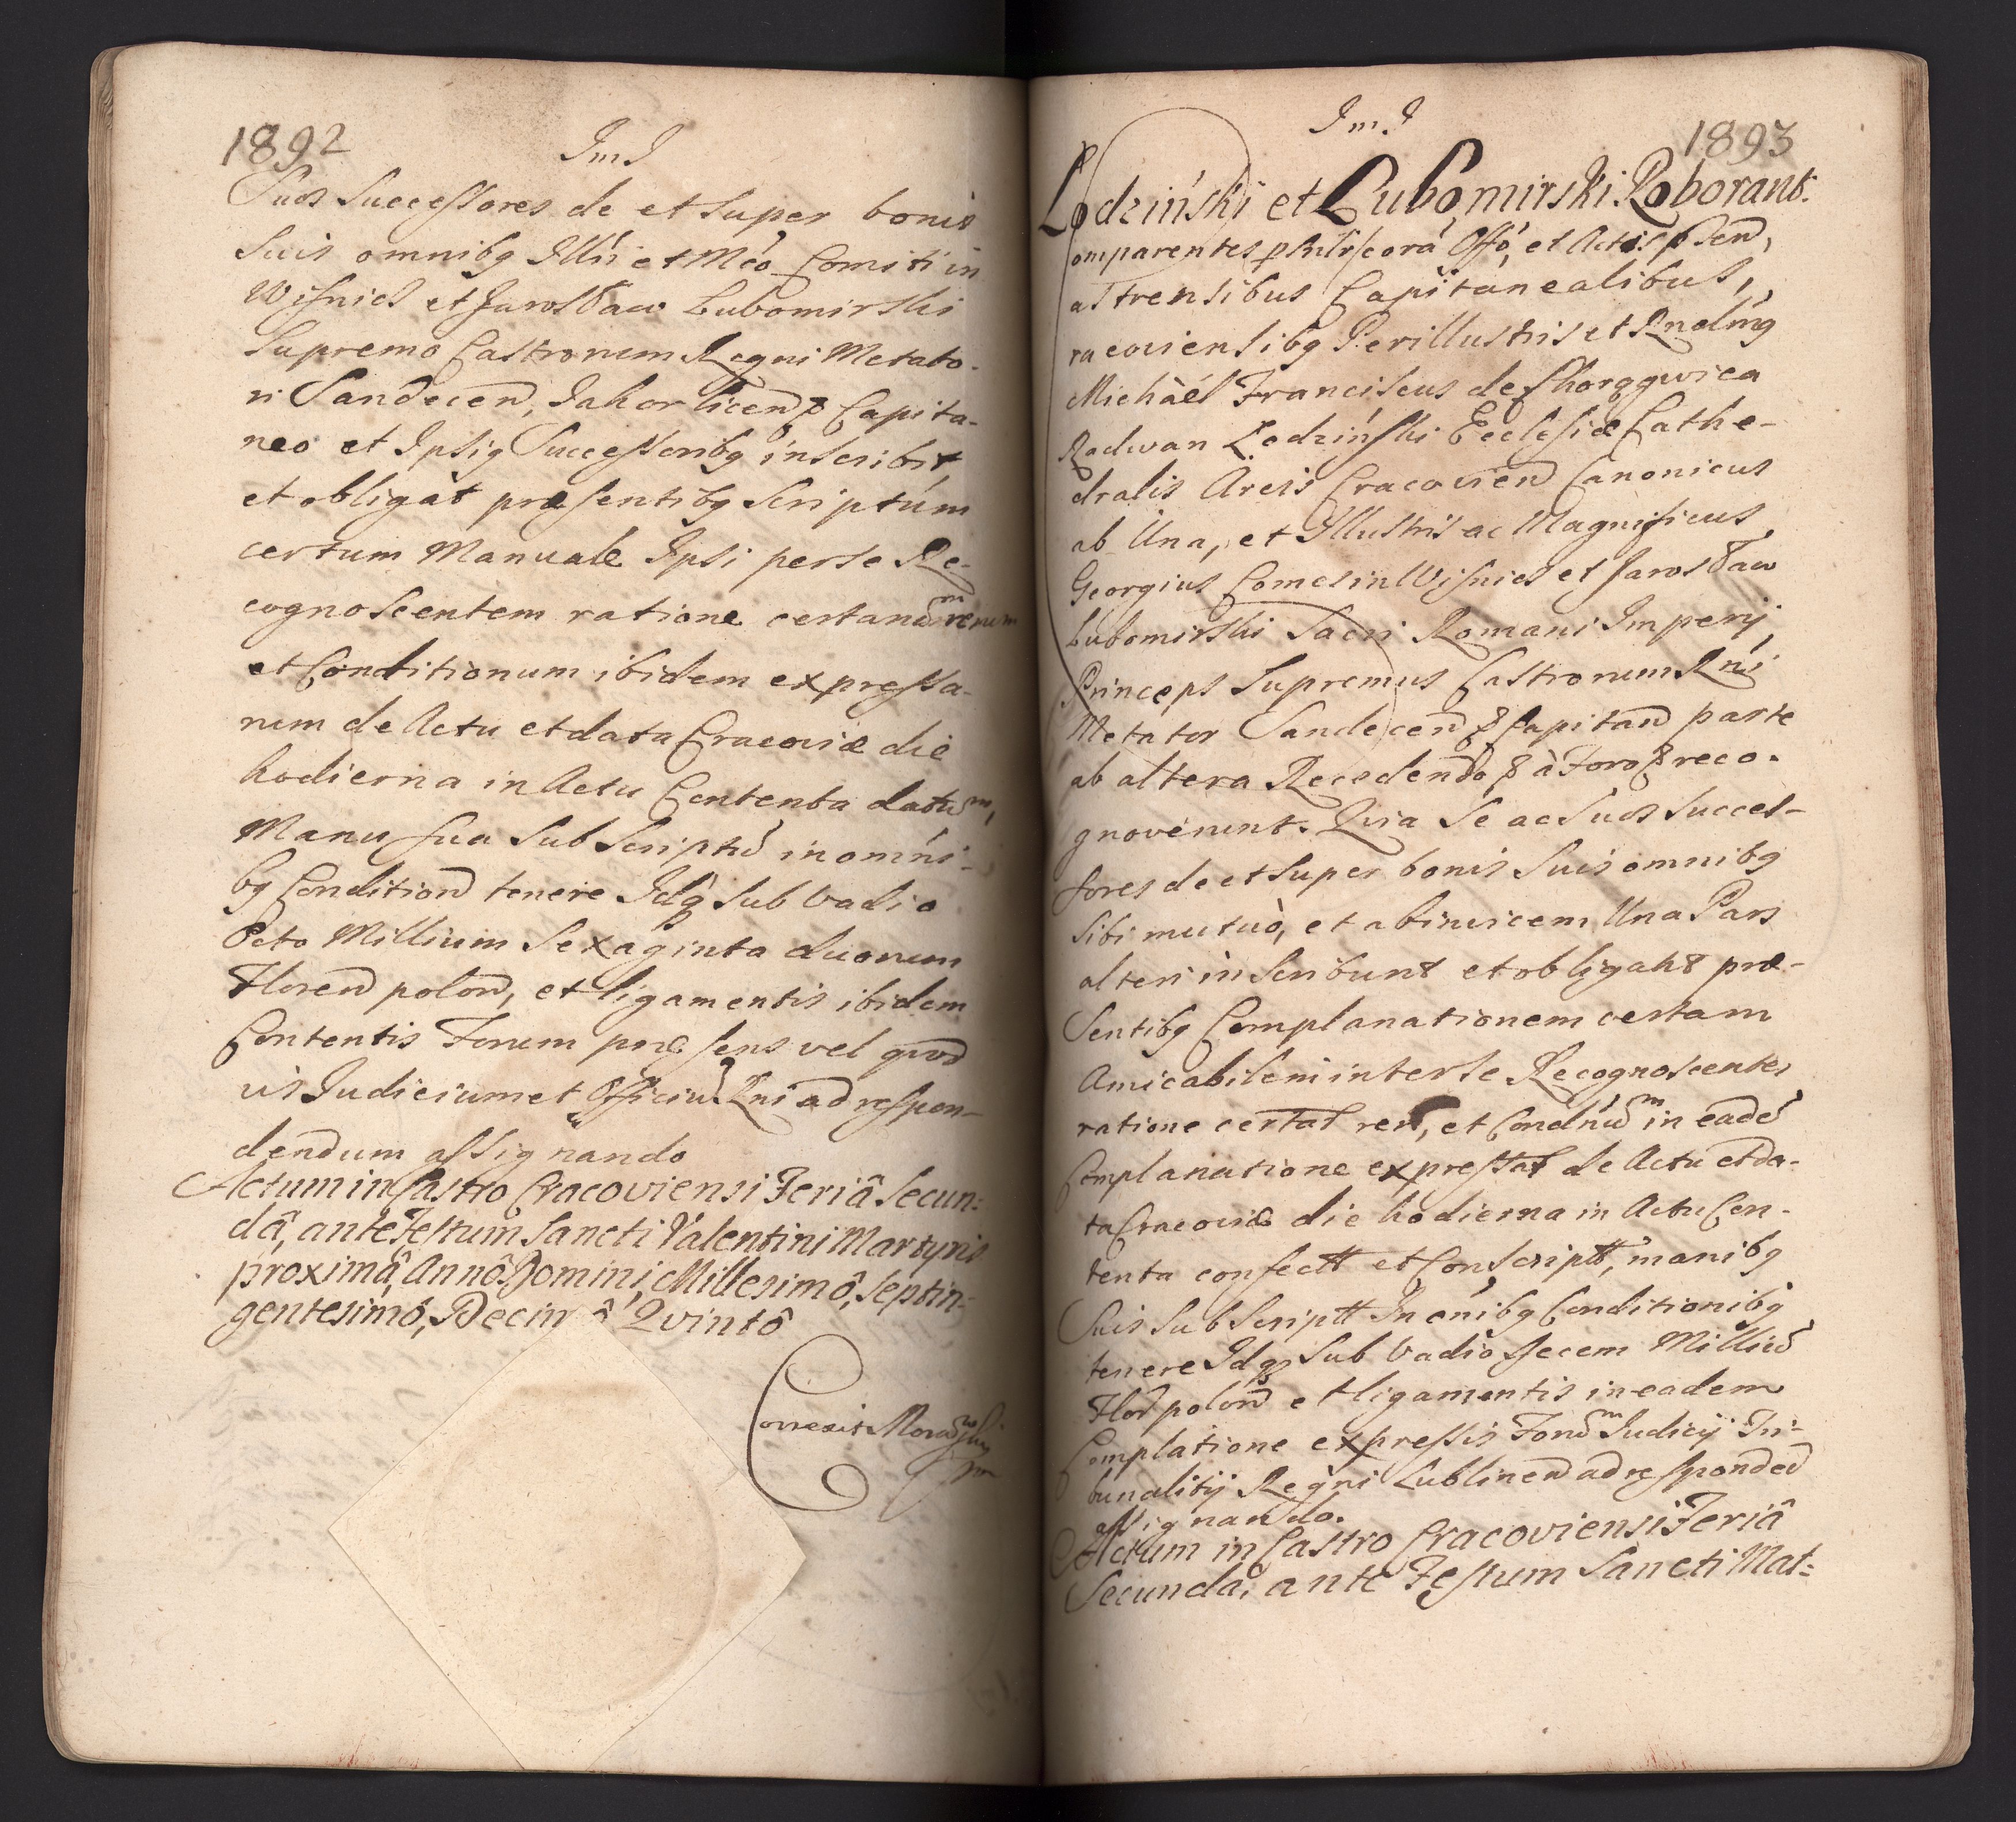 1892
Suos Successores de et super bonis
suis omnibq Illri et Mco Comiti in
Wisnicz et Jarosław Lubomirski
Supremo Castrorum Regni Metato-
ri Sandecen, Capita-
neo et Ipsiq Successoribq inscribit
et obligat præsentibq Scriptum
certum Manuale Ipsi per se Re-
cognoscentem ratione certarum rerum
et Conditionum ibidem expressa-
rum de Actu et data Cracoviæ die
hodierna in Actu Contenta datum,
Manu sua Subscriptũ in omni-
bq Condition tenere Idq sub vadio
Octo Millium Sexaginta duorum
Floren polon, et ligamentis ibidem
Contentis Forum præsens vel quod
vis Judicium et Officiũ Rni ad respon-
dendum assignando
Actum in Castro Cracoviensi Feriâ Secun:
dâ, ante Festum Sancti Valentini Martyris
proximâ, Annô Domini, Millesimô, Septin-
gentesimô, Decimô Quintô
Correxit
1893
Łodziński et Lubomirski Roborant:
Comparentes coram Offo, et Actis
Castrensibus Capitanealibus,
Cracoviensibq Perillustris et Rndmq
Michàél Franciscus de
Radwan Łodziński Ecclesiæ Cathe-
dralis Arcis Cracovien Canonicus
ab Una, et Illustris ac Magnificus
Georgius Comes in Wisnicz et Jarosław
Lubomirski Sacri Romani Imperij
Princeps Supremus Castrorum Rni
Metator Sandecen & Capitan parte
ab altera Recedendo & à Foro & reco-
gnoverunt. Quia Se ac Suos Succes-
sores de et super bonis Suis omnibq
Sibi mutuò, et abinvicem Una Pars
alteri inscribunt et obligant præ-
sentibq Complanationem certam
Amicabilem inter se Recognoscentes
ratione certar rer, et Condnũm in eadẽ
Complanatione expressar de Actu et da-
ta Cracoviæ die hodierna in Actu Con-
tenta confectt et Conscriptt, manibq
Suis Subscriptt In oĩbq Conditionibq
tenere Idq Sub Vadio Decem Milliũ
Flor polon et ligamentis in eadem
Complatione expressis Forũm Judicij Tri-
bunalitij Regni Lublinen ad responded
assignando.
Actum in Castro Cracoviensi Feriâ
Secundâ, ante Festum Sancti Mat: